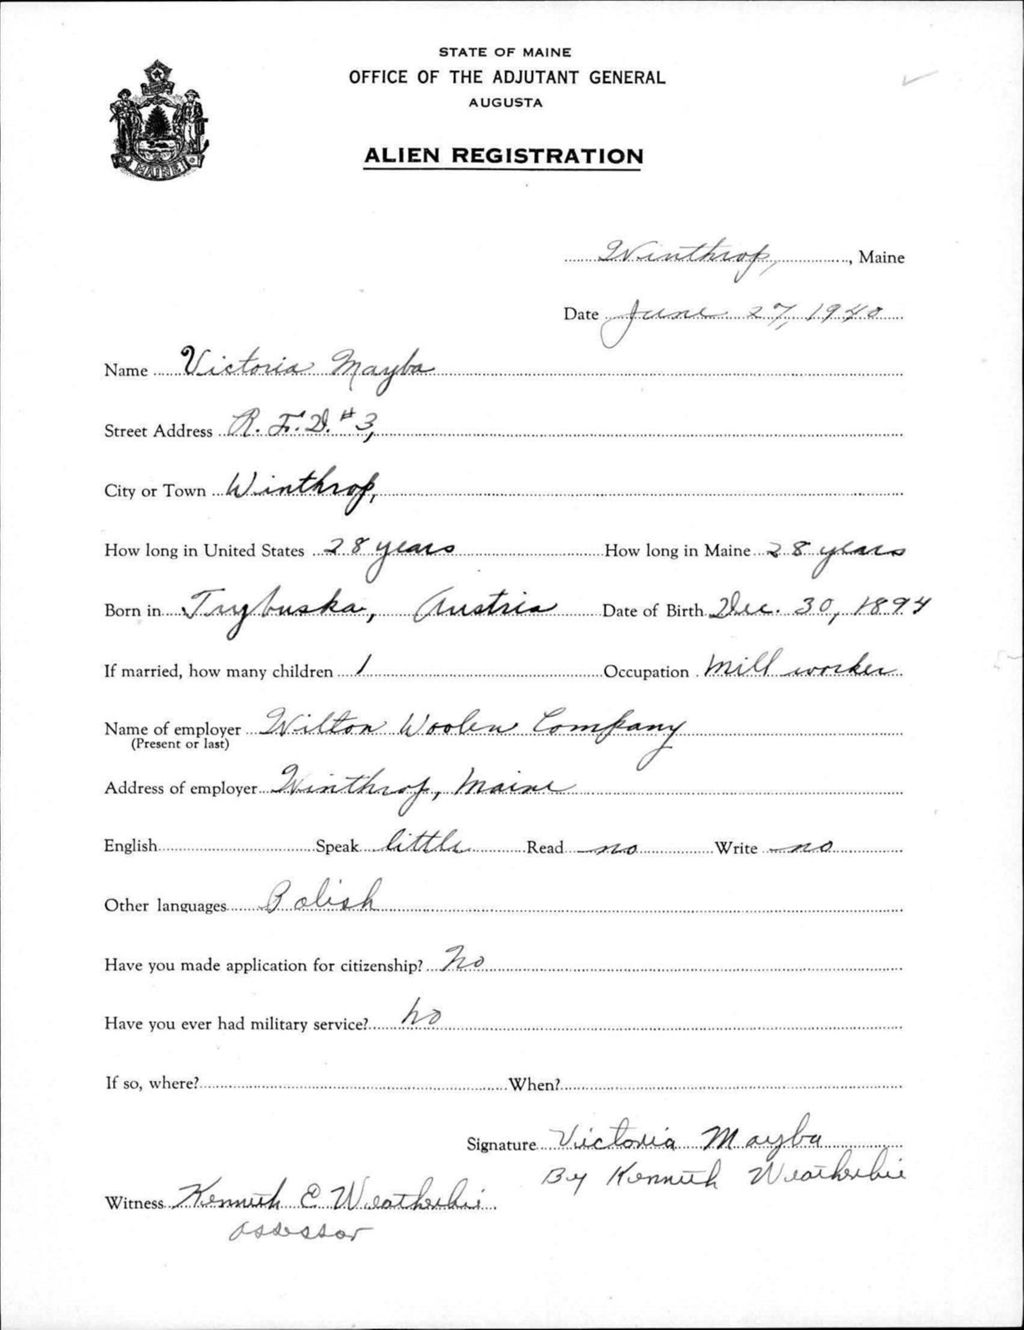 STATE OF MAINE
OFFICE OF THE ADJUTANT GENERAL
AUGUSTA
ALIEN REGISTRATION
MAINE
Winthrop, , Maine
Date June 27, 1940
Name Victoria Mayba
Street Address R. F. D. #3,
City or Town Winthrop,
How long in United States 28 years How long in Maine 28 years
Born in Trybuska, Austria Date of Birth Dec. 30, 1894
If married, how many children 1 Occupation Mill worker
Name of employer Wilton Woolen Company
(Present or last)
Address of employer Winthrop, Maine
English Speak little Read no Write no
Other languages Polish
Have you made application for citizenship? No
Have you ever had military service? No
If so, where? When?
Signature Victoria Mayba
By Kenneth Weatherbie
Witness Kenneth E Weatherbie
Assessor